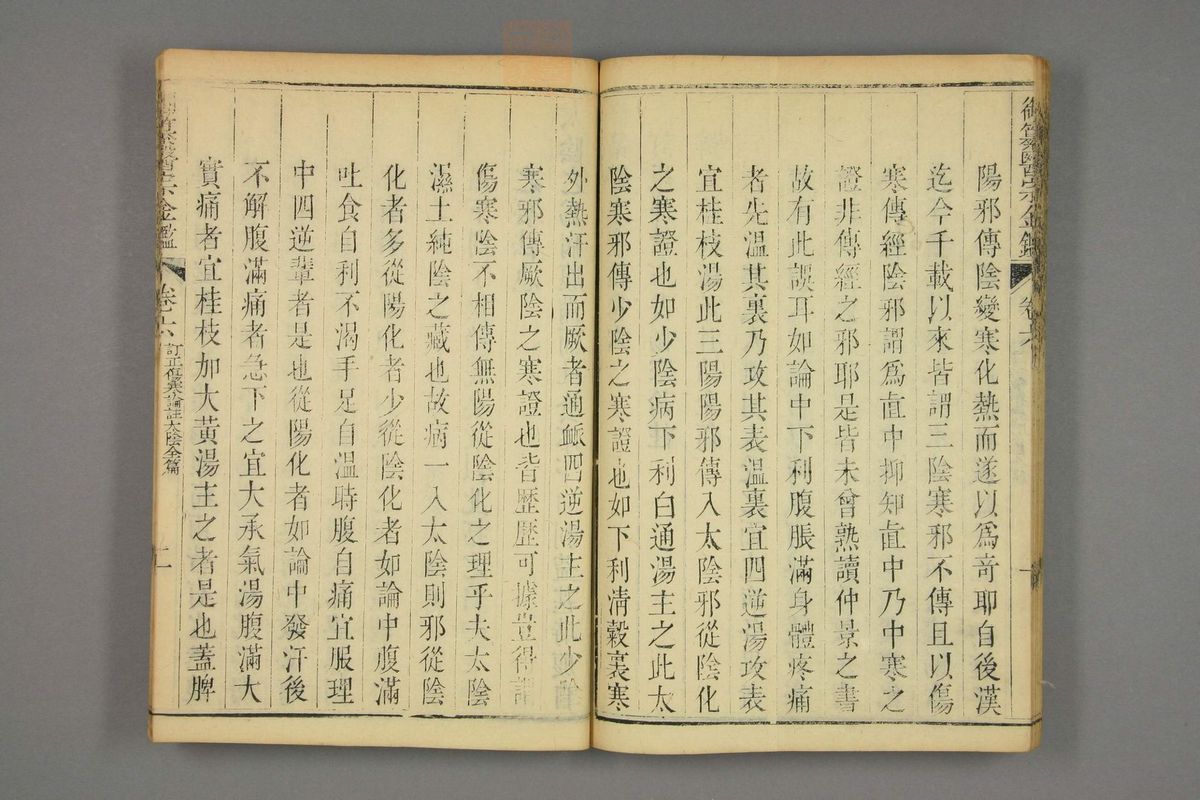 御纂醫宗金鑑 卷六
陽邪傳陰變寒化熱而遂以爲竒耶自後漢
迄今千載以來皆謂三陰寒邪不傳且以傷
寒傳經陰邪謂爲直中抑知直中乃中寒之
證非傳經之邪耶是皆未曾熟讀仲景之書
故有此誤耳如論中下利腹脹滿身體疼痛
者先溫其裏乃攻其表溫裏宜四逆湯攻表
宜桂枝湯此三陽陽邪傳入太陰邪從陰化
之寒證也如少陰病下利白通湯主之此太
陰寒邪傳少陰之寒證也如下利淸穀裏寒
外熱汗出而厥者通脈四逆湯主之此少陰
寒邪傳厥陰之寒證也皆歷歷可據豈得謂
傷寒陰不相傳無陽從陰化之理乎夫太陰
濕土純陰之藏也故病一入太陰則邪從陰
化者多從陽化者少從陰化者如論中腹滿
吐食自利不渴手足自溫時腹自痛宜服理
中四逆輩者是也從陽化者如論中發汗後
不解腹滿痛者急下之宜大承氣湯腹滿大
實痛者宜桂枝加大黃湯主之者是也蓋脾
御纂醫宗金鑑 卷六 訂正傷寒論註太陰全篇 二